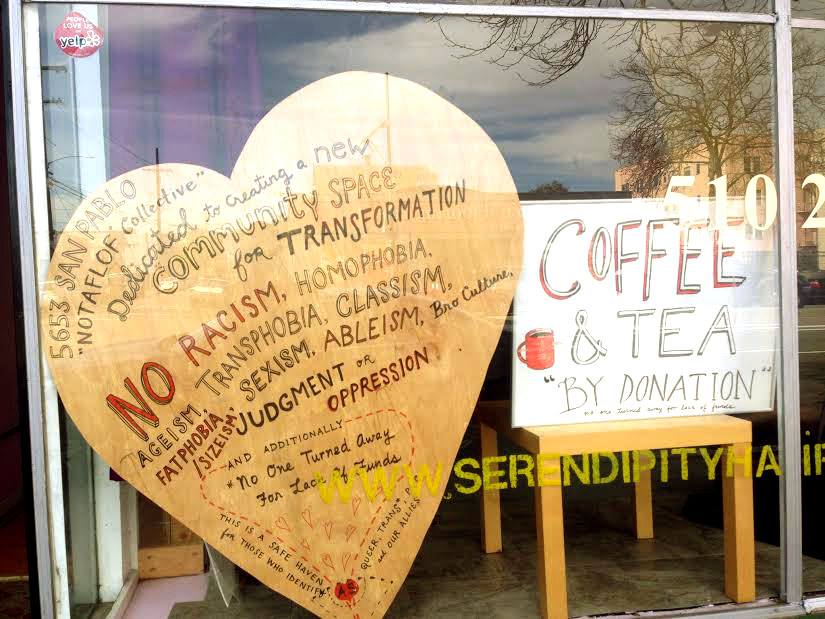 PEOPLE
LOVE US
ON
yelp
5653 SAN PABLO
"NOTAFLOF Collective"
Dedicated to creating a new
COMMUNITY SPACE
for TRANSFORMATION
NO RACISM, HOMOPHOBIA,
AGEISM, TRANSPHOBIA, CLASSISM,
FATPHOBIA, SEXISM, ABLEISM, Bro Culture,
/SIZEISM, JUDGMENT or
OPPRESSION
AND ADDITIONALLY
"No One Turned Away
For Lack Of Funds
THIS IS A SAFE HAVEN
for THOSE WHO IDENTIFY
AS
QUEER, TRANS*,
and OUR ALLIES
510 2
COFFEE
& TEA
"BY DONATION"
no one turned away for lack of funds
WWW.SERENDIPITYHAIR